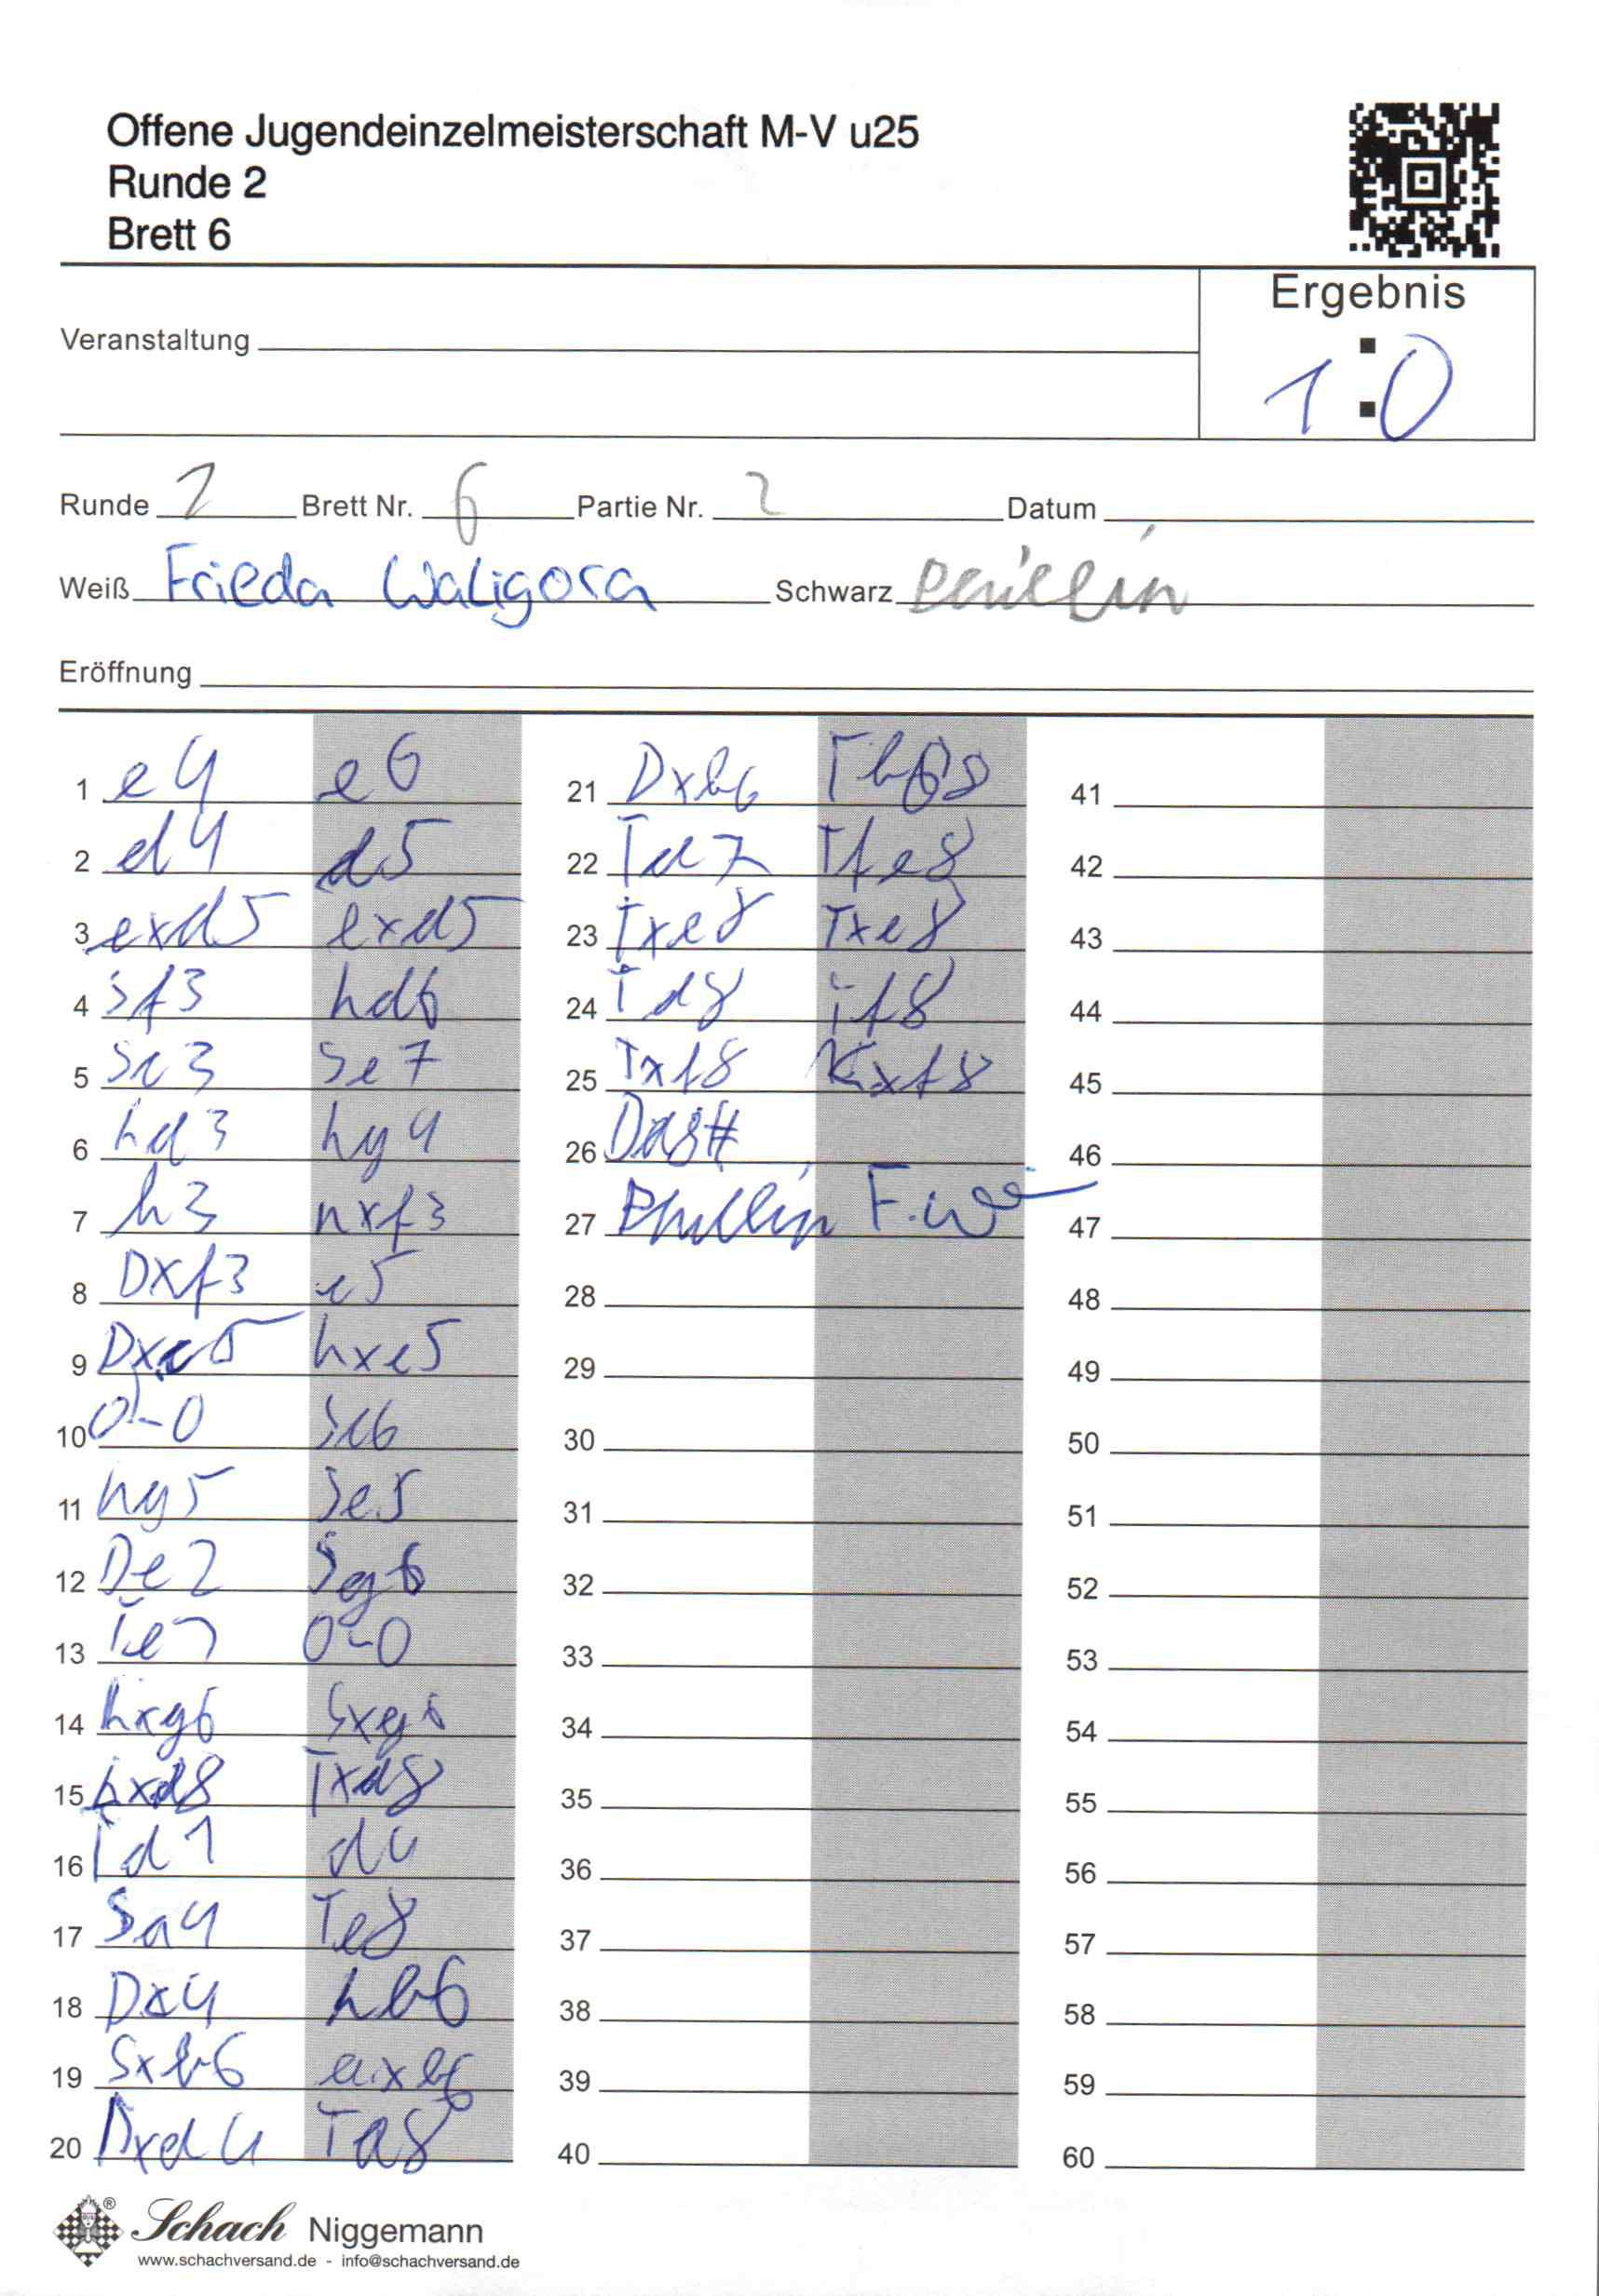 Offene Jugendeinzelmeisterschaft M-V u25
Runde 2
Brett 6
Ergebnis
Veranstaltung
1:0
Runde 2 Brett Nr. 6 Partie Nr. 2 Datum
Weiß Frieda Waligora Schwarz Phillin
Eröffnung
1 e4 e6
2 d4 d5
3 exd5 exd5
4 Sf3 hd6
5 Sc3 Se7
6 hd3 hg4
7 h3 hxf3
8 Dxf3 c5
9 Dxc5 hxc5
10 0-0 Sc6
11 hg5 Se5
12 De2 Sg6
13 Te1 0-0
14 hxg6 Sxg6
15 hxd8 Txd8
16 Td1 d4
17 Sa4 Te8
18 Dx4 hb6
19 Sxb6 axb6
20 Dxd4 Ta8
21 Dxb6 Tb8
22 Td7 Tfe8
23 Txe8 Txe8
24 Td8 Tf8
25 Txf8 Kxf8
26 Dd8#
27 Phillin F.W
28
29
30
31
32
33
34
35
36
37
38
39
40
41
42
43
44
45
46
47
48
49
50
51
52
53
54
55
56
57
58
59
60
Schach Niggemann
www.schachversand.de - info@schachversand.de